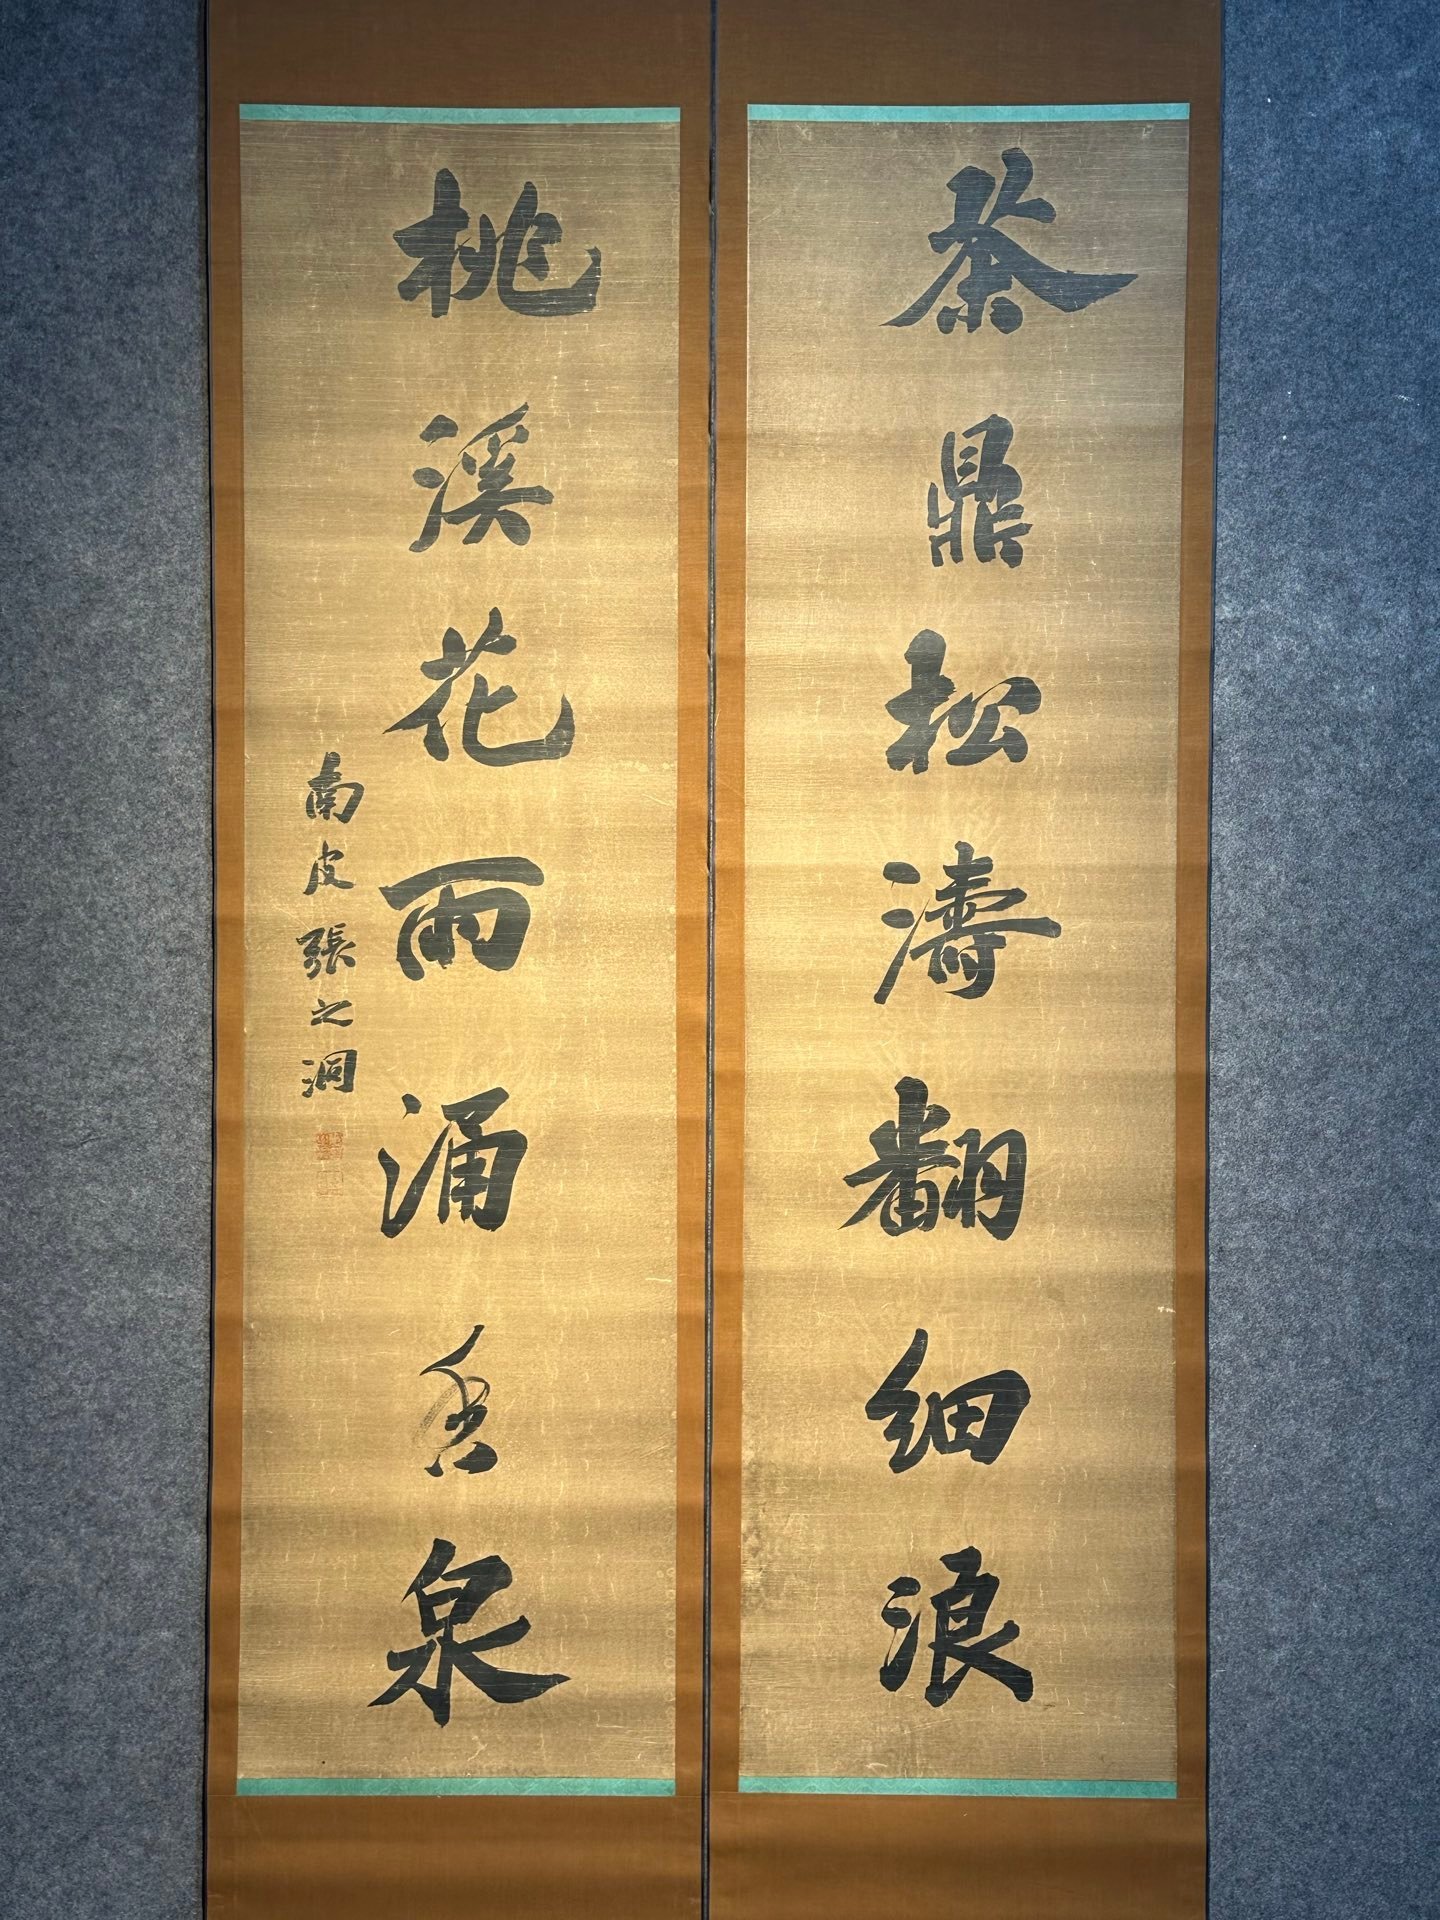 茶鼎松濤翻細浪
桃溪花雨涌香泉
南皮張之洞